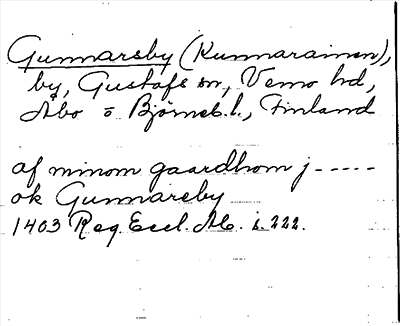 Gunnarsby (Kunnarainen),
by, Gustafs sn, Vemo hd,
Åbo o Björneb. l., Finland
af minom gaardhom j -----
ok Gunnarsby
1403 Reg. Eccl. Ab. s. 222.